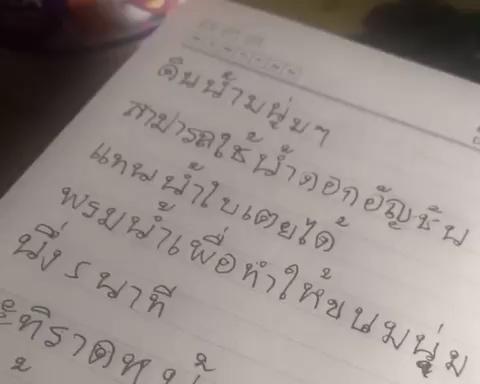 ดินน้ำมนุ่มๆ
สามารถใช้น้ำดอกอัญชัน
แทนน้ำใบเตยได้
พรมน้ำเพื่อทำให้ขนมนุ่ม
นึ่ง 5 นาที
กะทิราดหน้า